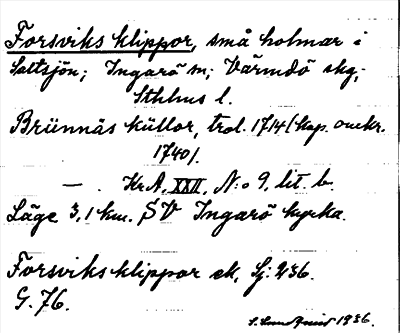 Forsviks klippor, små holmar i
Saltsjön; Ingarö sn; Värmdö skg;
Sthlms l.
Brünnäs küllor, trol. 1714 (kop. omkr.
1740).
— . Kr.A, XXII, N:o 9, lit. b.
Läge 3,1 km. SV Ingarö kyrka.
Forsviksklippor ek, Sj: 236.
G. 76.
1936.